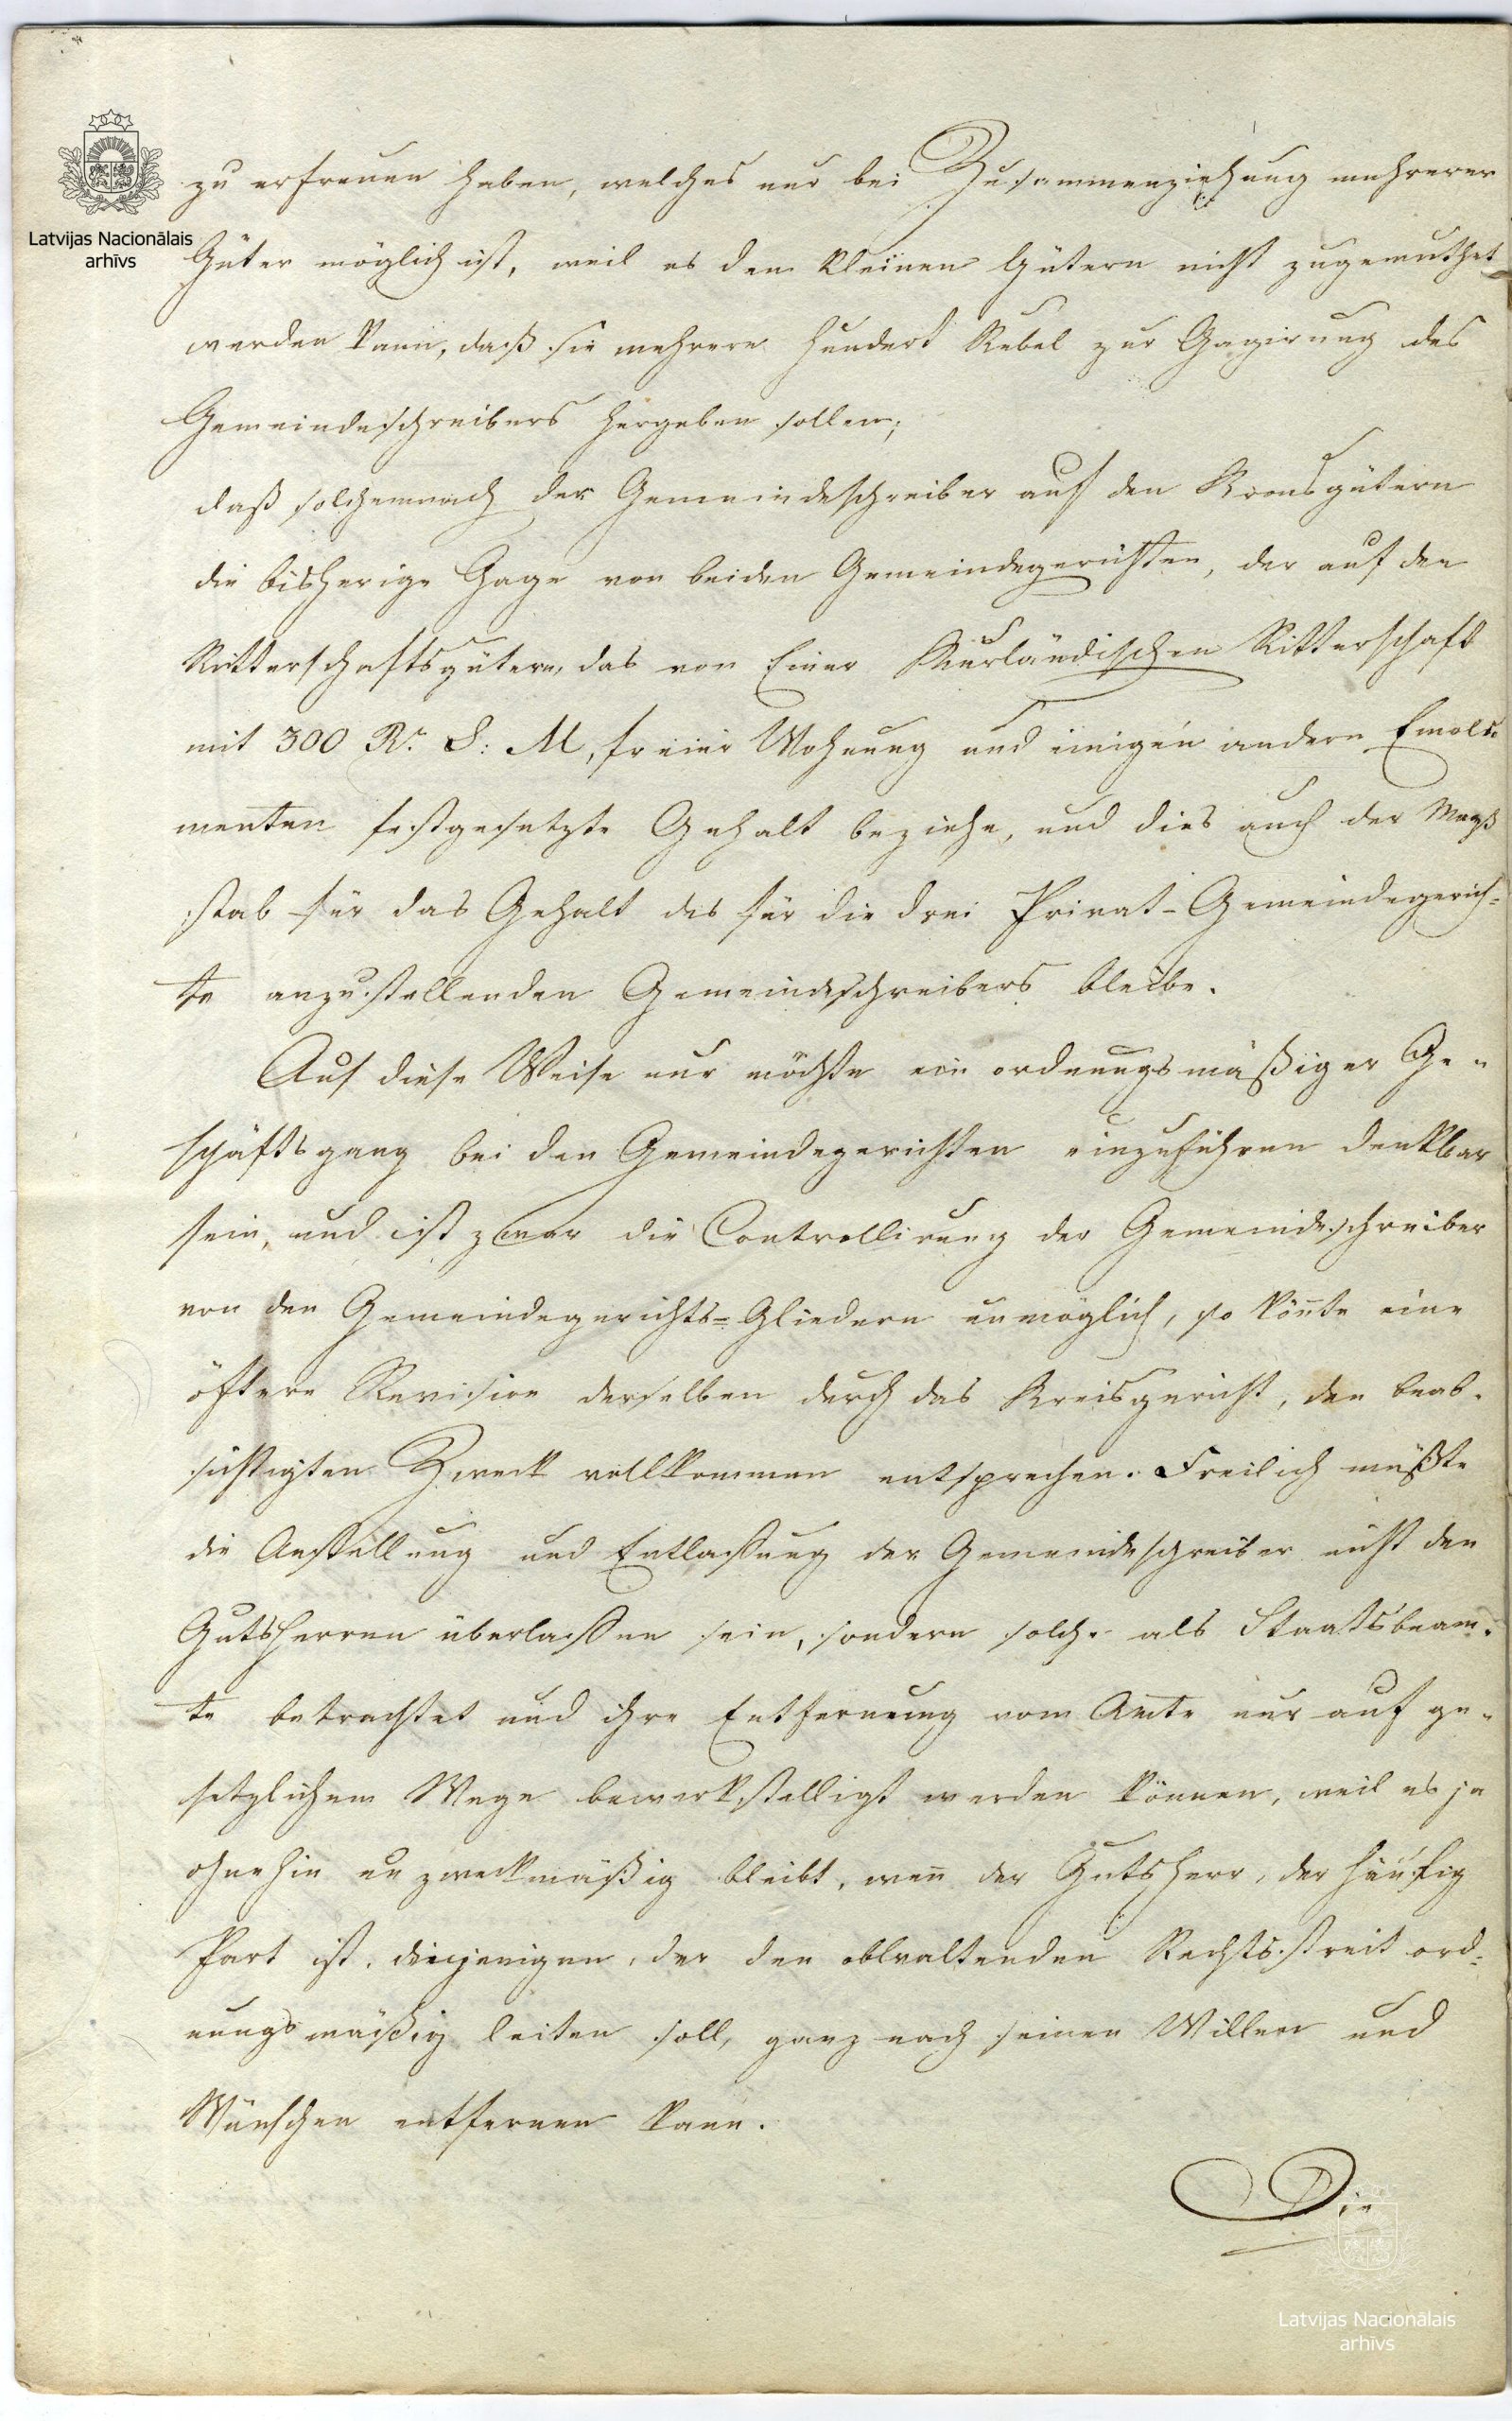 zu erfreuen haben, welches nur bei Zusammenziehung mehrerer
Latvijas Nacionālais
arhīvs
Güter möglich ist, weil es den kleinen Gütern nicht zugemuthet
werden kann, daß sie mehrere hundert Rubel zur Gagirung des
Gemeindeschreibers hergeben sollen;
daß solchemnach der Gemeindeschreiber auf den Kronsgütern
die bisherige Gage von beiden Gemeindegerichten, der auf den
Ritterschaftsgütern, das von Einer Kurländischen Ritterschaft
mit 300 R. S: M, freier Wohnung und einigen andern Emolu
menten festgesetzte Gehalt beziehe, und dies auch der Maaß
stab für das Gehalt des für die drei Privat-Gemeindegerich=
te anzustellenden Gemeindeschreibers bleibe.
Auf diese Weise nur möchte ein ordnungsmäßiger Ge-
schäftsgang bei den Gemeindegerichten einzuführen denkbar
sein, und ist zwar die Controllirung der Gemeindeschreiber
von den Gemeindegerichts=Gliedern unmöglich, so könnte eine
öftere Revision derselben durch das Kreisgericht, den beab-
sichtigten Zweck vollkommen entsprechen. Freilich müßte
die Anstellung und Entlassung der Gemeindeschreiber nicht den
Gutsherren überlassen sein, sondern solche als Staatsbeam-
te betrachtet und ihre Entfernung vom Amte nur auf ge-
setzlichem Wege bewerkstelligt werden können, weil es ja
ohnehin unzweckmäßig bleibt, wenn der Gutsherr, der häufig
Part ist, denjenigen, der den obwaltenden Rechtsstreit ord=
nungsmäßig leiten soll, ganz nach seinen Willen und
Wünschen entfernen kann.
Die
Latvijas Nacionālais
arhīvs